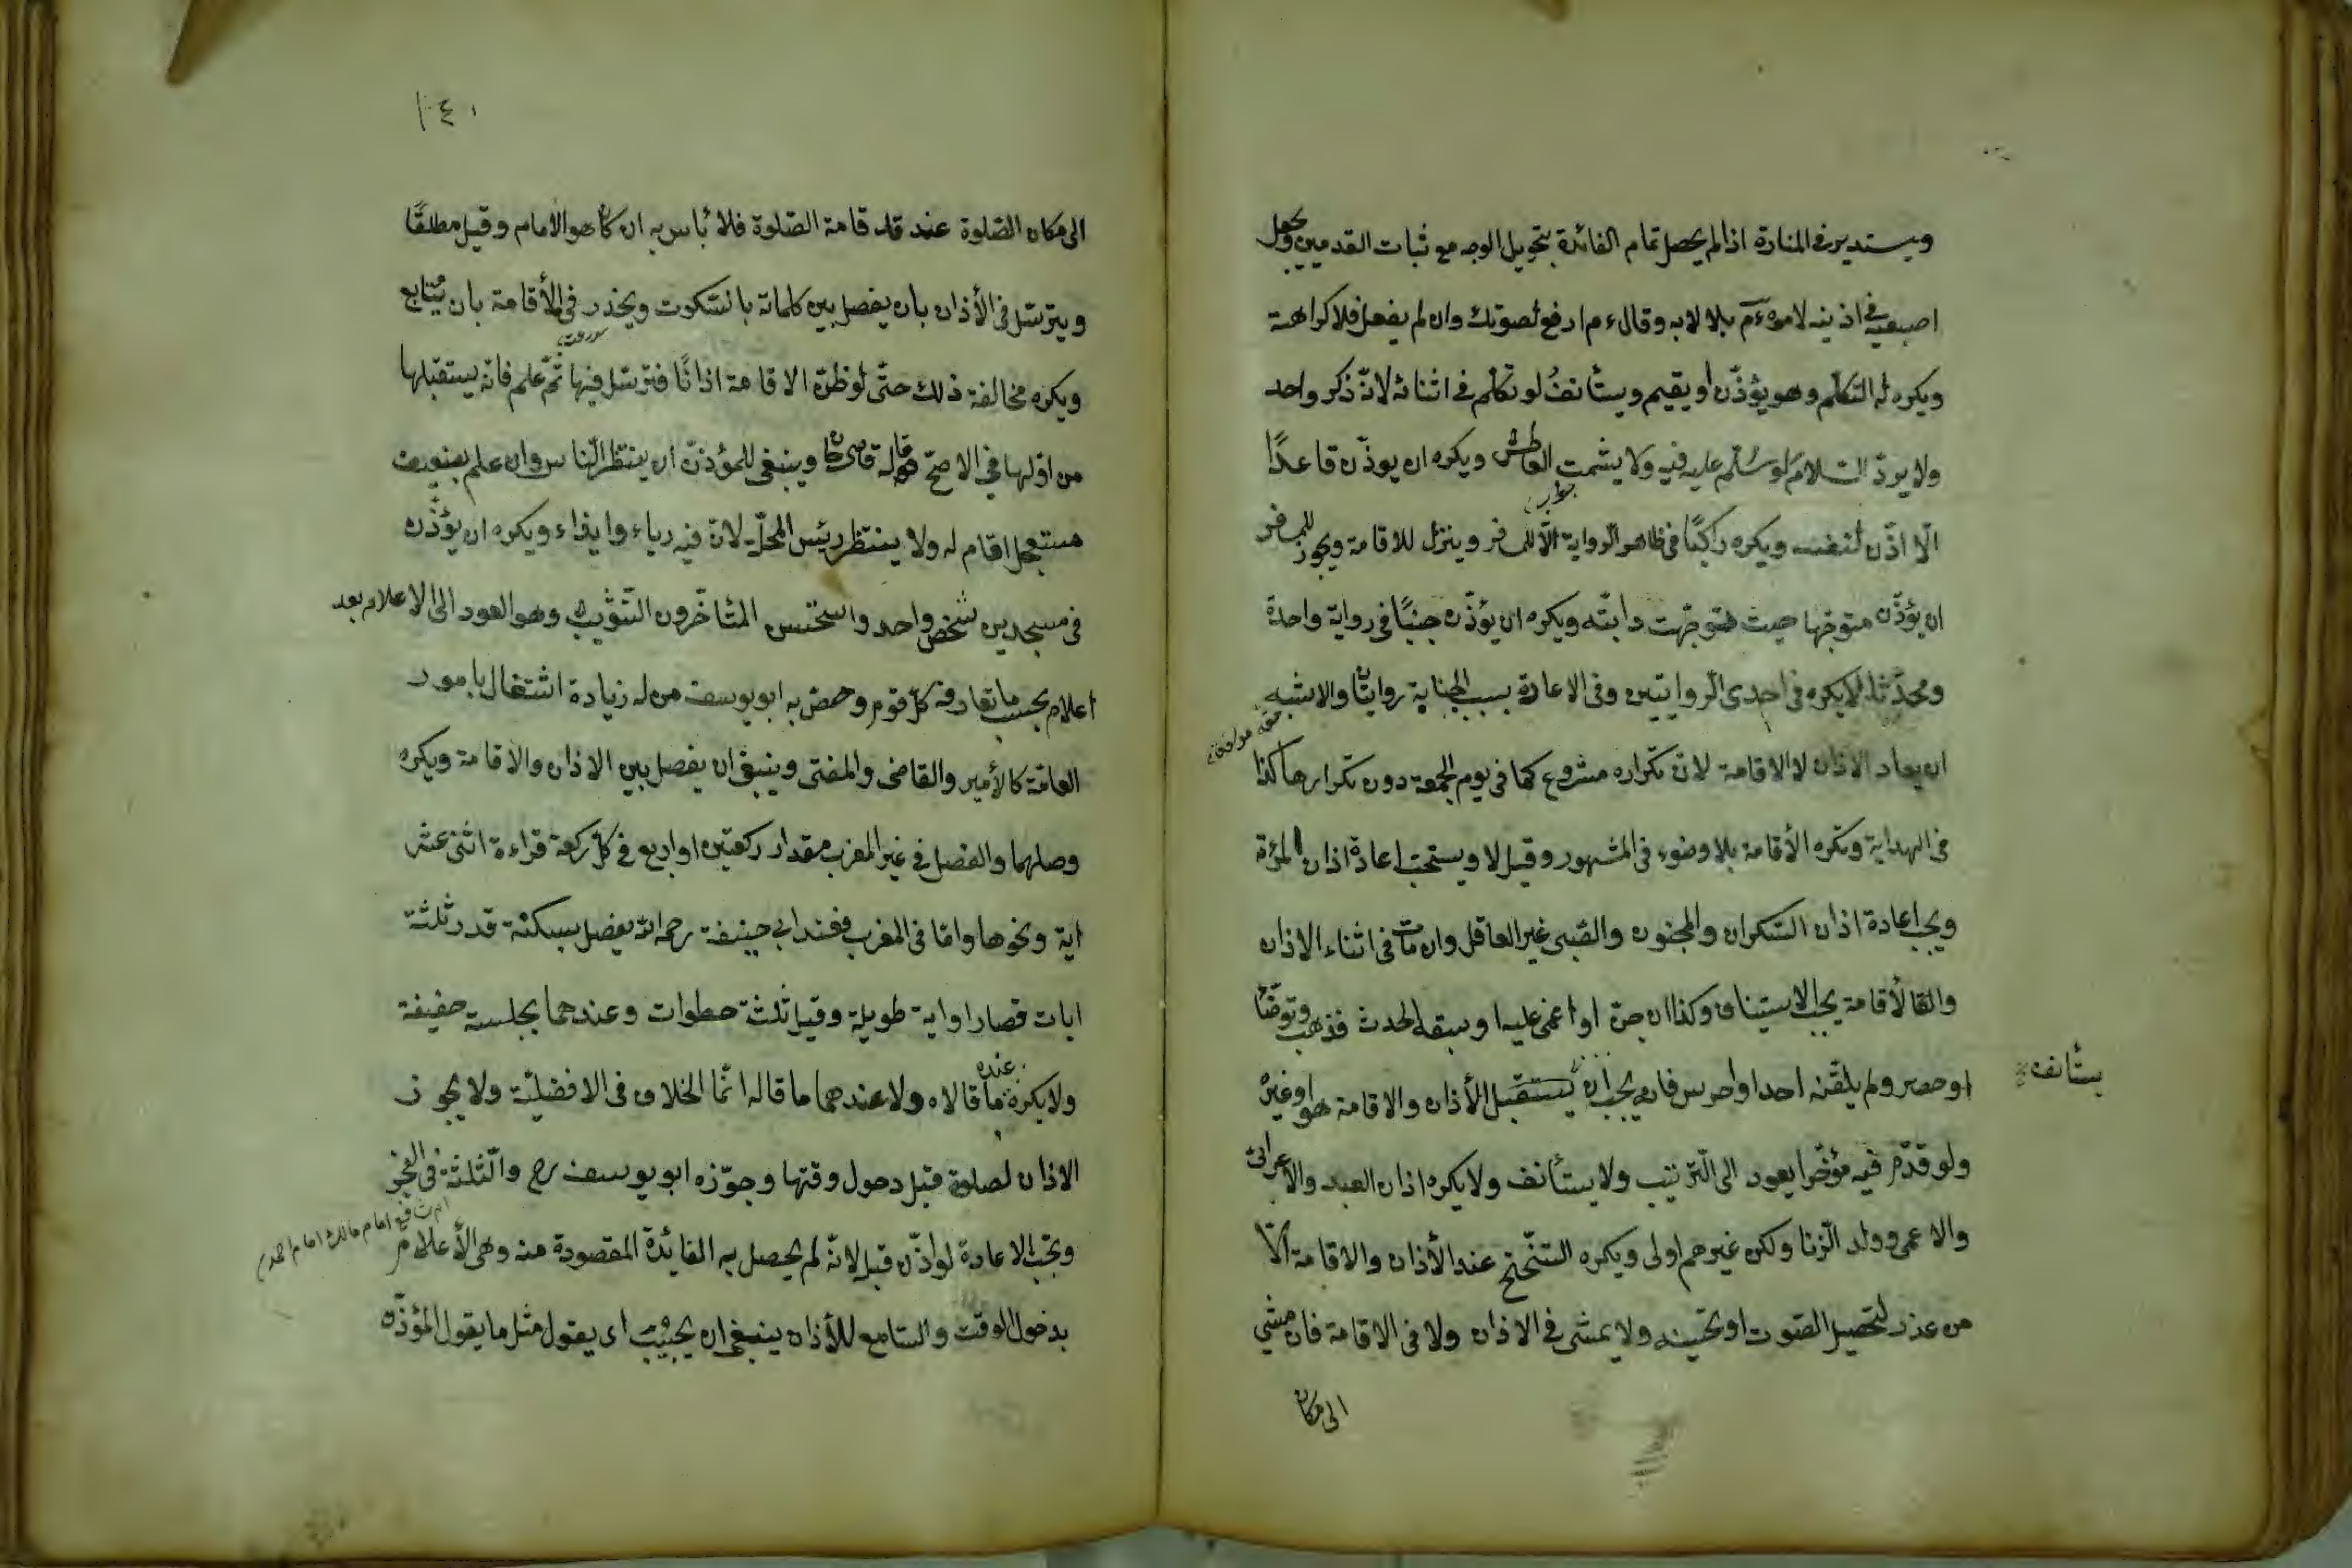 ويستدير فى المنارة اذا لم يحصل تمام الفائدة بتحويل الوجه مع ثبات القدمين ويجعل
اصبعيه فى اذنيه لامره عم بلالا به وقال عم ارفع لصوتك وان لم يفعل فلا كراهة
ويكره له التكلم وهو يؤذّن او يقيم ويستأنفُ لو تكلم فى اثنائه لانّه ذكر واحد
ولا يردّ السّلام لو سُلّم عليه فيه ولا يشمت العاطش ويكره ان يوذّن قاعدًا
الّا اذّن لنفسه ويكره راكبًا فى ظاهر الرواية الّا للمسافر وينزل للاقامة ويجوز للمسافر
جواب
ان يؤذّن متوجّها حيث توجّهت دابته ويكره ان يؤذّن جنبًا فى رواية واحدة
ومحدثا لا يكره فى احدى الروايتين وفى الاعادة بسبب الجنابة روايتان والاشبه
ان يعاد الاذان لا الاقامة لان تكراره مشروع كما فى يوم الجمعة دون تكرارها كذا
فى الهداية وتكره الأقامة بلا وضوء فى المشهور وقيل لا ويستحبّ اعادة اذان المرءة
ويجب اعادة اذان السّكران والمجنون والصّبى غير العاقل وان مات فى اثناء الاذان
والاقامة يجب الاستيناف وكذا ان جنّ او اغمى عليه او سبقه الحدث فذهب وتوضّأ
او حصر ولم يلقّنه احد او اخرس فانه يجب ان يستقبل الأذان والاقامة هو او غيره
يستأنف
ولو قدّم فيه مؤخّرا يعود الى التّرتيب ولا يستأنف ولا يكره اذان العبد والاعرابى
والاعمى وولد الزنا ولكن غيرهم اولى ويكره التنحنح عند الأذان والاقامة الّا
من عذر لتحصيل الصّوت او تحسينه ولا يمشى فى الاذان ولا فى الاقامة فان مشى
الى مكان
١٤٠
الى مكان الصّلوة عند قد قامة الصّلوة فلا بأس به ان كان هو الامام وقيل مطلقًا
ويترسّل فى الأذان بان يفصل بين كلماته بالسّكوت ويحذر فى الأقامة بان يُتابع
ويكره مخالفة ذلك حتّى لو ظنّ الاقامة اذانًا فترسّل فيها ثمّ علم فانّه يستقبلها
من اوّلها فى الاصحّ قاله قاضى خان وينبغى للمؤذّن ان ينتظر النّاس وان علم بضعيف
مستعجل اقام له ولا ينتظر رئيس المحلّ لانّ فيه رياء وايذاء ويكره ان يؤذّن
فى مسجدين شخص واحد واستحسن المتأخّرون التّثويب وهو العود الى الاعلام بعد
اعلام بحسب ما تعارفه كلّ قوم وخصّ به ابو يوسف من له زيادة اشتغال بامور
العامّة كالأمير والقاضى والمفتى وينبغى ان يفصل بين الاذان والاقامة ويكره
وصلهما والفصل فى غير المغرب مقدار ركعتين او اربع فى كلّ ركعة قراءة اثنى عشر
اية ونحوها وامّا فى المغرب فعند ابى حنيفة رحمه الله يفصل بسكتة قدر ثلثة
ايات قصار او اية طويلة وقيل ثلث خطوات وعندهما بجلسة خفيفة
ولا يكره عنده ما قالاه ولا عندهما ما قاله انّما الخلاف فى الافضليّة ولا يجوز
الاذان لصلوة قبل دخول وقتها وجوّزه ابو يوسف رح والثّلثة فى الفجر
امام مالك امام احمد
وتجب الاعادة لو اذّن قبل لانّه لم يحصل به الفائدة المقصودة منه وهى الأعلام
بدخول الوقت والسّامع للأذان ينبغى ان يجيب اى يقول مثل ما يقول المؤذّن